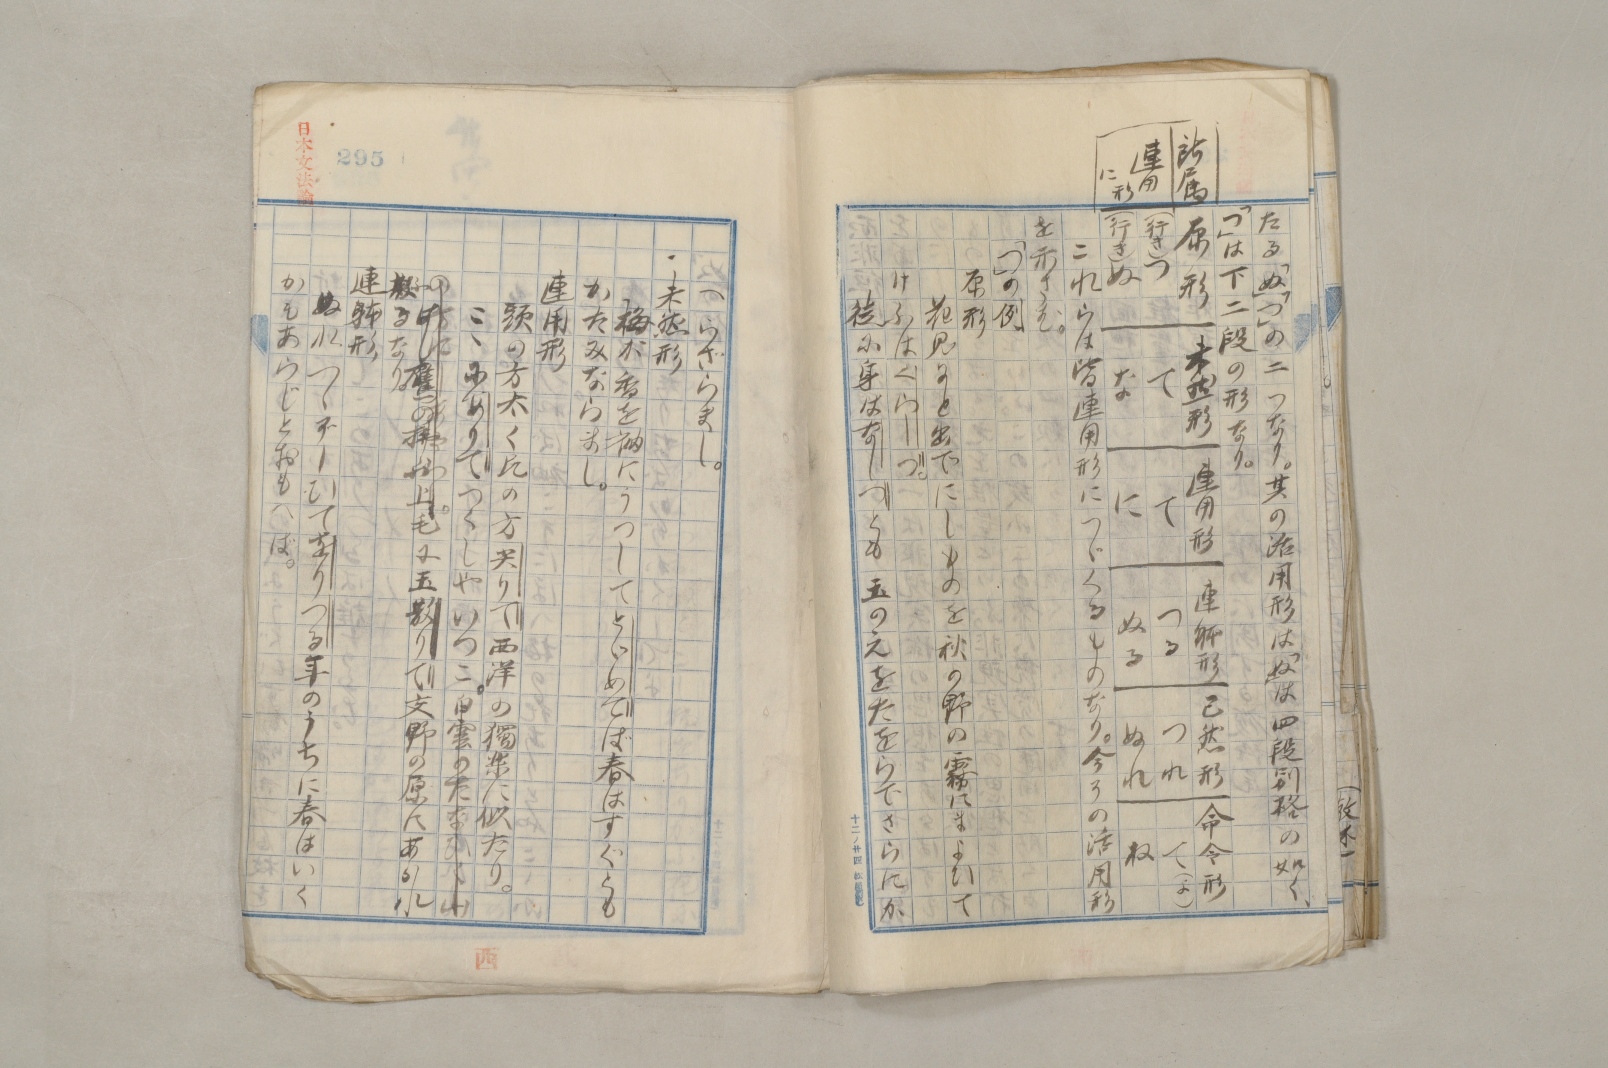 たる「ぬ」「つ」の二つなり。其の活用形は「ぬ」は四段別格の如く、
「つ」は下二段の形なり。
附属
連用形に
原形 未然形 連用形 連体形 已然形 命令形
(行き)つ て て つる つれ て(よ)
(行き)ぬ な に ぬる ぬれ ね
これらは皆連用形につゞくるものなり。今その活用形
を示さむ。
「つ」の例
原形
花見るとと出でにしものを秋の野の霧にまよひて
けふはくらしつ。
徒に身はなしつとも玉のえをたをらでさらにか
十二ノ廿四
295
日本文法論
へらざらまし。
未然形
梅が香を袖にうつしてとゞめてば春はすぐとも
かたみならまし。
連用形
頭の方太く尻の方尖りて西洋の獨楽に似たり。
こゝにありてつくしやいづこ。白雲のたなびく山
の
散るなり
鷹の 上毛に玉散りて交野の原にあられ
連体形
ぬれつゝぞしひて折りつる年のうちに春はいく
かもあらじとおもへば。
西
(改本)